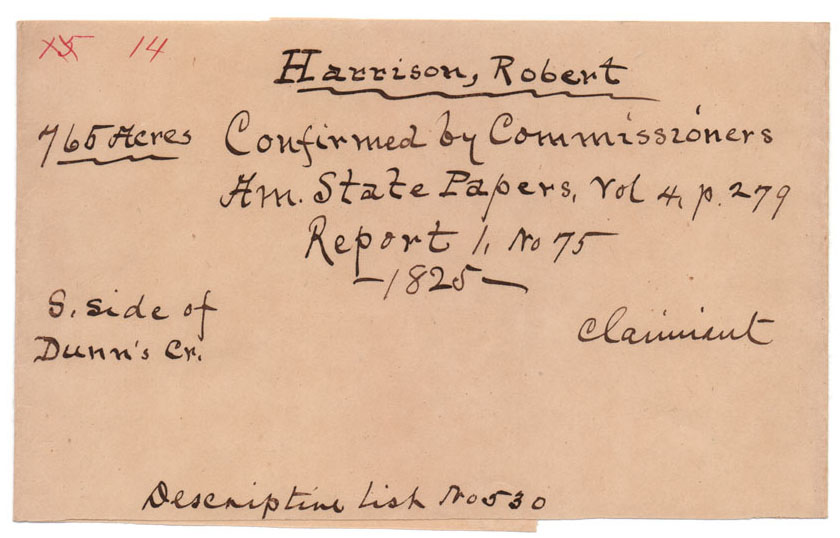 15 14
Harrison, Robert
765 Acres Confirmed by Commissioners
Am. State Papers, Vol 4, p. 279
Report 1, No 75
—1825—
S. side of
Dunn's Cr.
Claimant
Descriptive List No 530